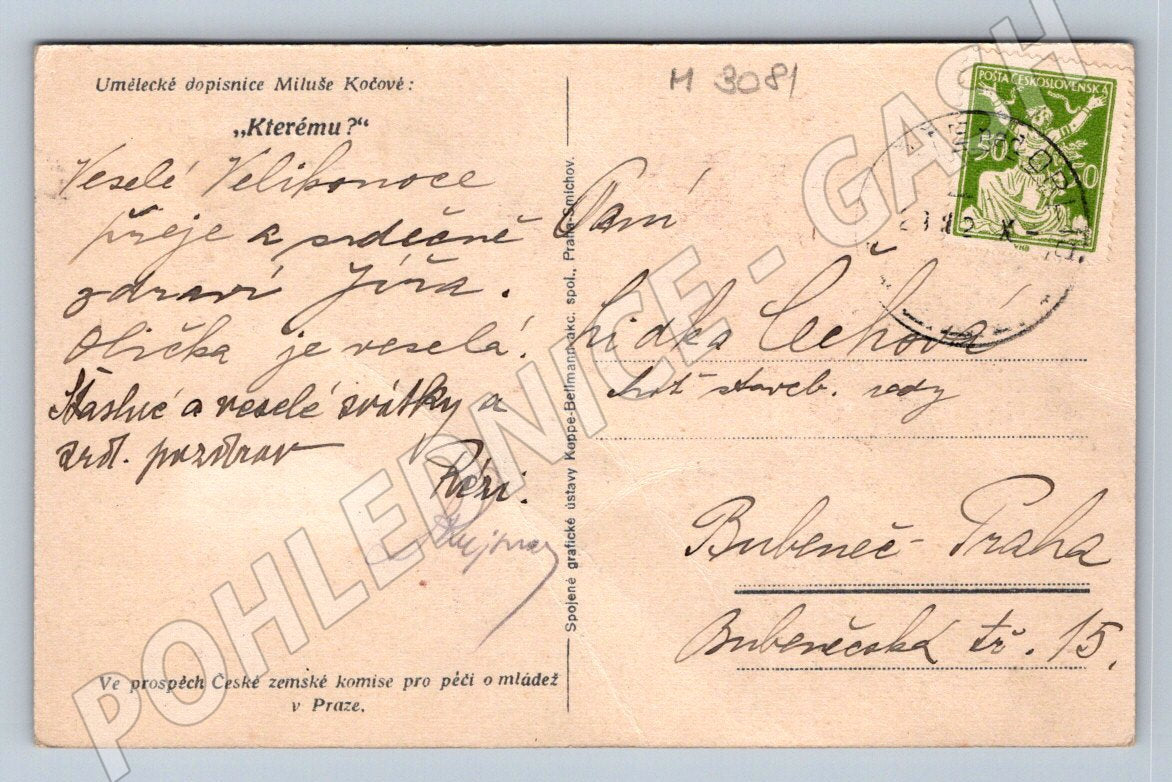 Umělecké dopisnice Miluše Kočové:
„Kterému?"
Veselé Velikonoce
přeje a srdečně
zdraví Jířa.
Olička je veselá.
Šťastné a veselé svátky a
srd. pozdrav
Réri.
M 3081
POŠTA ČESKOSLOVENSKÁ
50 50
Paní
Lidka Čechová
choť staveb. rady
Bubeneč-Praha
Bubenečská tř. 15.
Spojené grafické ústavy Koppe-Bellmann akc. spol., Praha-Smíchov.
Ve prospěch České zemské komise pro péči o mládež
v Praze.
POHLEDNICE - GASH